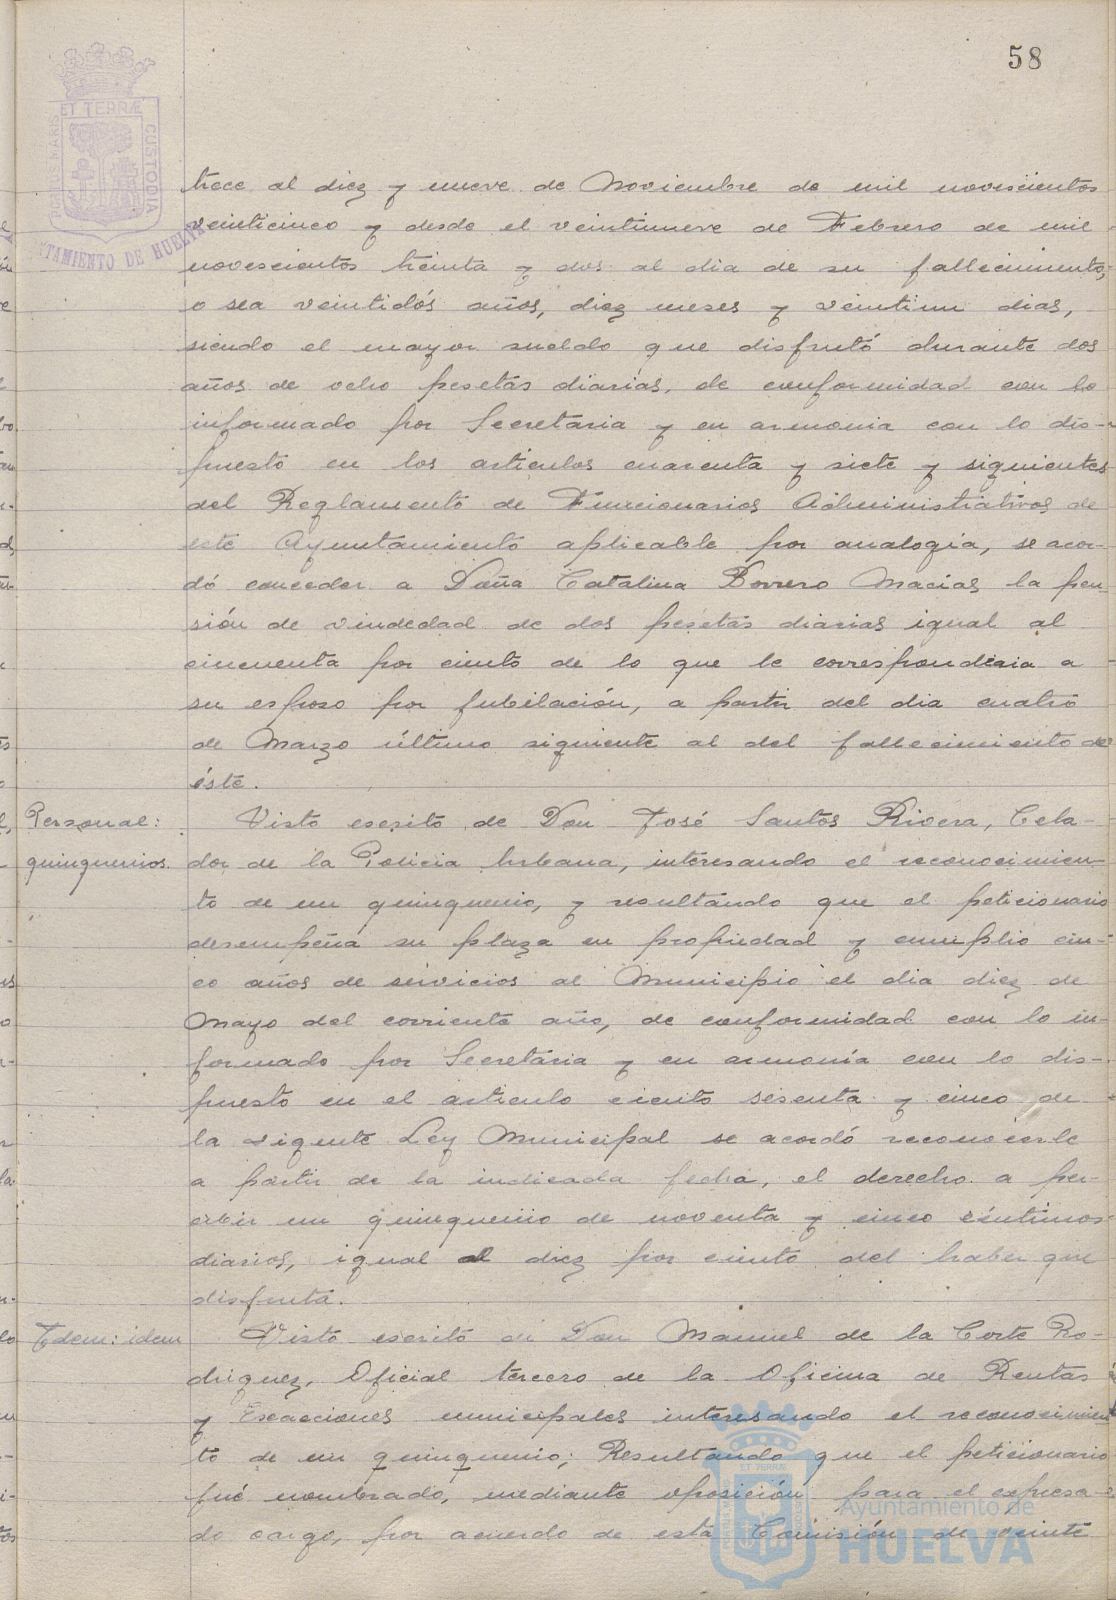 58
PORTUS MARIS ET TERRÆ CUSTODIA
AYUNTAMIENTO DE HUELVA
trece al diez y nueve de Noviembre de mil novescientos
veinticinco y desde el veintinueve de Febrero de mil
novescientos treinta y dos al dia de su fallecimiento,
o sea veintidós años, diez meses y veintiun dias,
siendo el mayor sueldo que disfrutó durante dos
años de ocho pesetas diarias, de conformidad con lo
informado por Secretaria y en armonia con lo dis-
puesto en los articulos cuarenta y siete y siguientes
del Reglamento de Funcionarios Administrativos de
este Ayuntamiento aplicable por analogía, se acor-
dó conceder a Doña Catalina Borrero Macías la pen-
sión de viudedad de dos pesetas diarias igual al
cincuenta por ciento de lo que le correspondiaria a
su esposo por jubilación, a partir del dia cuatro
de Marzo último siguiente al del fallecimiento de
éste.
Personal: Visto escrito de Don José Santos Rivera, Cela-
quinquenios. dor de la Policia Urbana, interesando el reconocimien-
to de un quinquenio, y resultando que el peticionario
desempeña su plaza en propiedad y cumplio cin-
co años de servicios al Municipio el dia diez de
Mayo del corriente año, de conformidad con lo in-
formado por Secretaria y en armonía con lo dis-
puesto en el articulo ciento sesenta y cinco de
la vigente Ley Municipal se acordó reconocerle
a partir de la indicada fecha, el derecho a per-
cibir un quinquenio de noventa y cinco céntimos
diarios, igual al diez por ciento del haber que
disfruta.
Idem: idem Visto escrito de Don Manuel de la Corte Ro-
driguez, Oficial tercero de la Oficina de Rentas
y Exacciones municipales interesando el reconocimien
to de un quinquenio; Resultando que el peticionario
fué nombrado, mediante oposición para el expresa-
do cargo, por acuerdo de esta Comisión de veinte
Ayuntamiento de
HUELVA